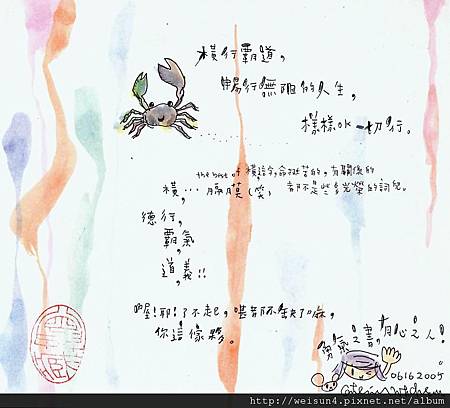 橫行霸道，
暢行無阻的人生，
樣樣OK一切行。
the best of
橫…膈膜(笑)
都不是些多光榮的詞兒。
德行，
霸氣，
道，義!!
喔!耶!了不起，甚者都不缺了嘛，
你這傢夥。
勇氣之書，有心之人!
06162005
http://weisun4.pixnet.net/album